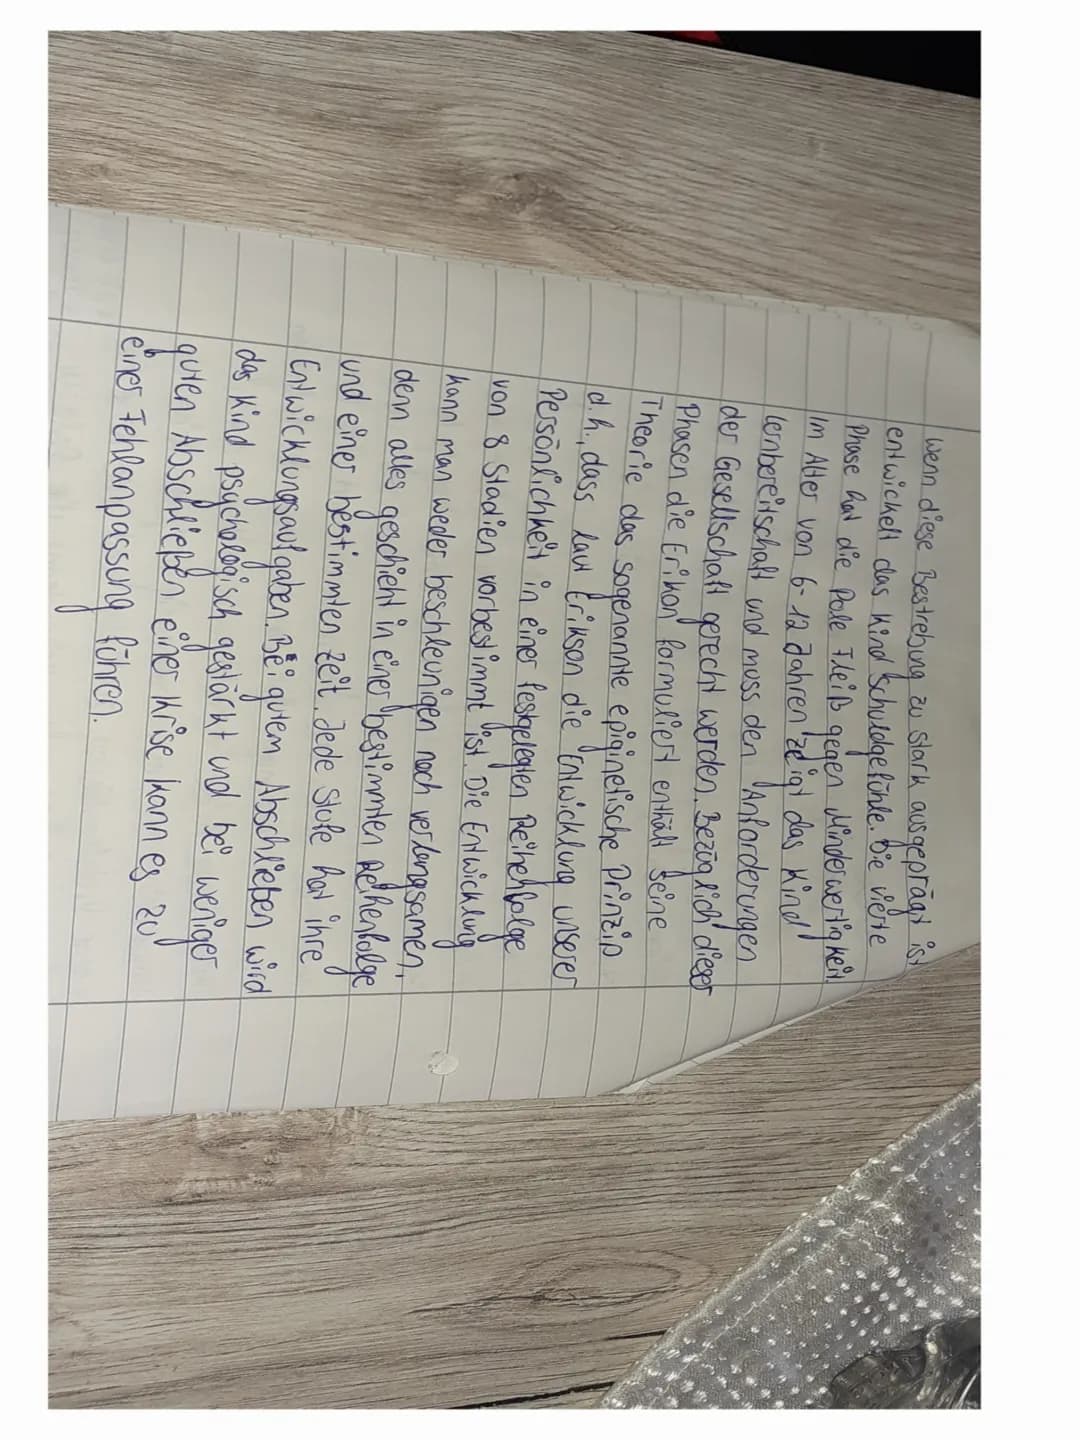 wenn diese Bestrebung zu stark ausgeprägt ist
entwickelt das Kind Schuldgefühle. Die vierte
Phase hat die Pole Fleiß gegen Minderwertigkeit.
Im Alter von 6-12 Jahren zeigt das Kind
Lernbereitschaft und muss den Anforderungen
der Gesellschaft gerecht werden. Bezüglich dieser
Phasen die Erikon formuliert enthält seine
Theorie das sogenannte epiginetische Prinzip
d.h., dass laut Erikson die Entwicklung unserer
Persönlichkeit in einer festgelegten Reihehfolge
von 8 Stadien vorbestimmt ist. Die Entwicklung
kann man weder beschleunigen noch verlangsamen,
denn alles geschieht in einer bestimmten Reihenfolge
und einer bestimmten Zeit. Jede Stufe hat ihre
Entwicklungsaufgaben. Bei gutem Abschließen wird
das Kind psychologisch gestärkt und bei weniger
guten Abschließen einer Krise kann es zu
einer Fehlanpassung führen.